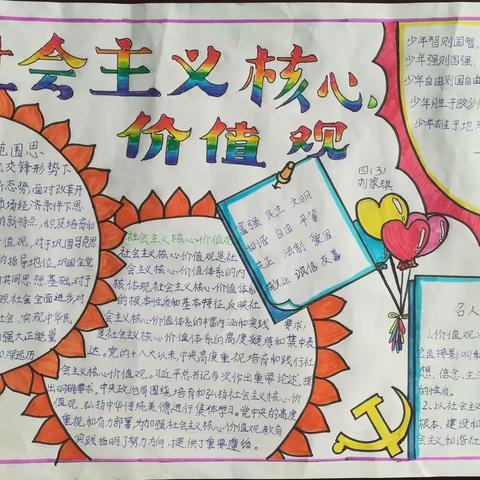 社会主义核心
价值观
少年智则国智，
少年强则国强，
少年自由则国自由
少年胜于欧洲
少年雄于地
四（3）
刘家琪
富强 民主 文明
和谐 自由 平等
公正 法制 爱国
敬业 诚信 友善
范围思
交锋形势下
新态势，面对改革开
市场经济条件下思
的新特点，积极培育和
价值观，对于巩固马克思
的指导地位，巩固全党
共同思想基础，对于
社会全面进步，对
社会，实现中华民
强大正能量
社会主义核心价值观
社会主义核心价值观是社
会主义核心价值体系的内
核，体现社会主义核心价值体系
的根本性质和基本特征，反映社
会主义核心价值体系的丰富内涵和实践要求，
是社会主义核心价值体系的高度凝练和集中表
达。党的十八大以来，中央高度重视培育和践行社
会主义核心价值观。习近平总书记多次作出重要论述，提
出明确要求。中央政治局围绕培育和弘扬社会主义核心价
值观，弘扬中华传统美德进行集体学习。党中央的高度
重视和有力部署为加强社会主义核心价值观教育
实践指明了努力方向，提供了重要遵循。
名人
1.价值观
它直接影响和
想、信念、生活
的性质。
2、以社会主
根本，建设和
会主义和谐社